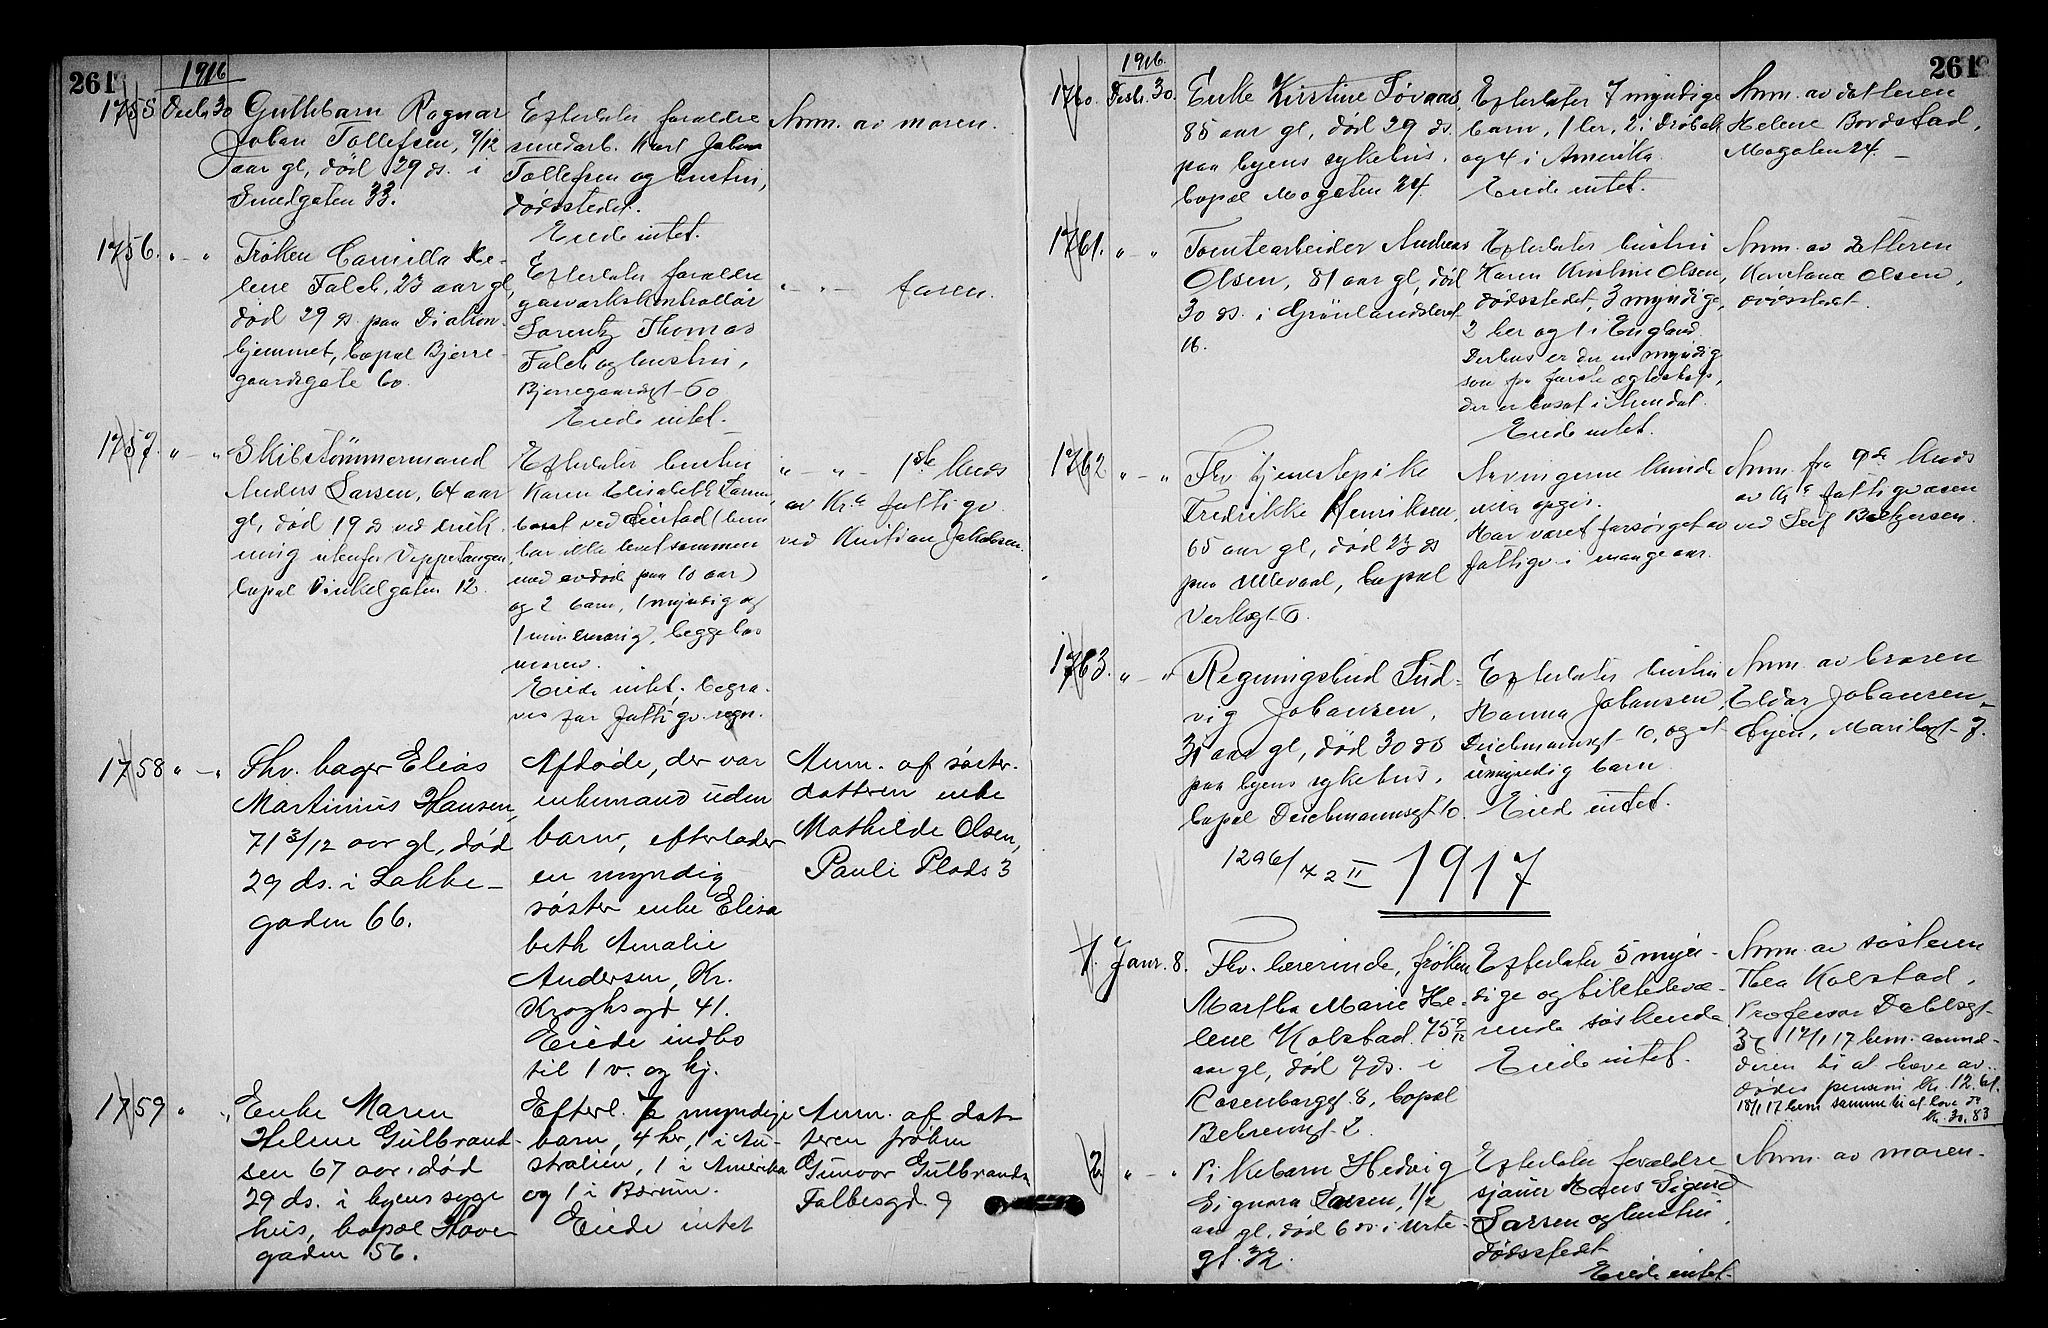 261
1916
1755 Decbr. 30
Guttebarn Ragnar
Johan Tollefsen, 9/12
aar gl, død 29 ds. i
Smedgaten 33.
Efterlater forældre
smedarb. Karl Johan
Tollefsen og hustru,
dødsstedet.
Eiede intet.
Anm. av moren.
1756. " - "
Frøken Camilla He-
lene Falch, 23 aar gl,
død 29 ds. paa Diakon-
hjemmet, bopæl Bjerre-
gaardsgate 60.
Efterlater forældre
gasverkskontrollør
Lorentz Thomas
Falch og hustru,
Bjerregaardsgt 60
Eiede intet.
" - " - faren.
1757. " - "
Skibstømmermand
Anders Larsen, 64 aar
gl, død 19 ds ved druk-
ning utenfor Vippetangen,
bopæl Vinkelgaten 12.
Efterlater hustru
Karen Elisabeth Larsen,
bosat ved (hun
har ikke levet sammen
med avdøde paa 10 aar)
og 2 barn, 1 myndig og
1 umyndig, begge hos
moren.
Eiede intet; begra-
ves for Fattigv. regn.
" - " - 1ste Kreds
av Kr.a Fattigv.
ved Kristian Jakobsen.
1758 " - "
Fhv. bager Elias
Martinius Hansen,
71 3/12 aar gl, død
29 ds. i Lakke-
gaden 66.
Afdøde, der var
enkemand uden
barn, efterlader
en myndig
søster enke Elisa
beth Amalie
Andersen, Kr.
Kroghsgd 41.
Eiede indbo
til 1 v. og kj.
Anm. af søster-
datteren enke
Mathilde Olsen,
Pauli Plads 3
1759 " "
Enke Maren
Helene Gulbrand-
sen 67 aar, død
29 ds. i byens syge
hus, bopæl Have
gaden 56.
Efterl. 7 myndige
barn, 4 her, 1 i Au-
stralien, 1 i Amerika
og 1 i Bærum.
Eiede intet
Anm. af dat-
teren frøken
Gunvor Gulbrands
Falbesgd. 9
261
1916.
1760. Desbr. 30.
Enke Kirstine Løvaas
85 aar gl, død 29 ds.
paa byens sykehus,
bopæl Mogaten 24
Efterlater 7 myndige
barn, 1 her, 2 i Drøbak
og 4 i Amerika.
Eiede intet.
Anm. av datteren
Helene Bordstad,
Mogaten 24. -
1761. " - "
Tomtearbeider Andreas
Olsen, 81 aar gl, død
30 ds. i Grønlandsleret
16.
Efterlater hustru
Karen Kristine Olsen,
dødsstedet, 3 myndige,
2 her og 1 i England.
Desuten er der en myndig
søn fra første ægteskap,
der er bosat i Arendal.
Eiede intet.
Anm. av datteren
Olsen,
dødsstedet.
1762 " - "
Fhv. tjenestepike
Fredrikke Henriksen,
65 aar gl, død 23 ds
paa Ullevaal, bopæl
Verksgt 6.
Arvingerne kunde
ikke opgis.
Har været forsørget av
fattigv. i mange aar.
Anm. fra 9de Kreds
av Kr.a fattigvæsen
ved Leif
1763. " - "
Regningsbud Lud-
vig Johansen,
31 aar gl, død 30 ds
paa byens sykehus,
bopæl Deichmannsgt 10.
Efterlater hustru
Hanna Johansen,
Deichmannsgt 10, og et
umyndig barn.
Eiede intet.
Anm. av broren
Eldar Johansen,
Maribogt 7.
1296/72 II 1917
1. Janr. 8.
Fhv. lærerinde, frøken
Martha Marie He-
lene Kolstad, 75 9/12
aar gl, død 7 ds. i
Rosenborggt 8, bopæl
Behrensgt 2
Efterlater 5 myn-
dige og tilstedevæ-
rende søskende
Eiede intet.
Anm. av søsteren
Thea Kolstad,
Professor Dahlsgt
36 17/1 17 bem. anmel-
deren til at heve av-
dødes pension kr. 12.61.
18/1 17 bem. samme til at heve do
kr. 30.83
2. " - "
Pikebarn Hedvig
Signora Larsen, 1/2
aar gl, død 6 ds. i Urte-
gt. 32.
Efterlater forældre
sjauer Hans Sigurd
Larsen og hustru,
dødsstedet
Eiede intet.
Anm. av moren.